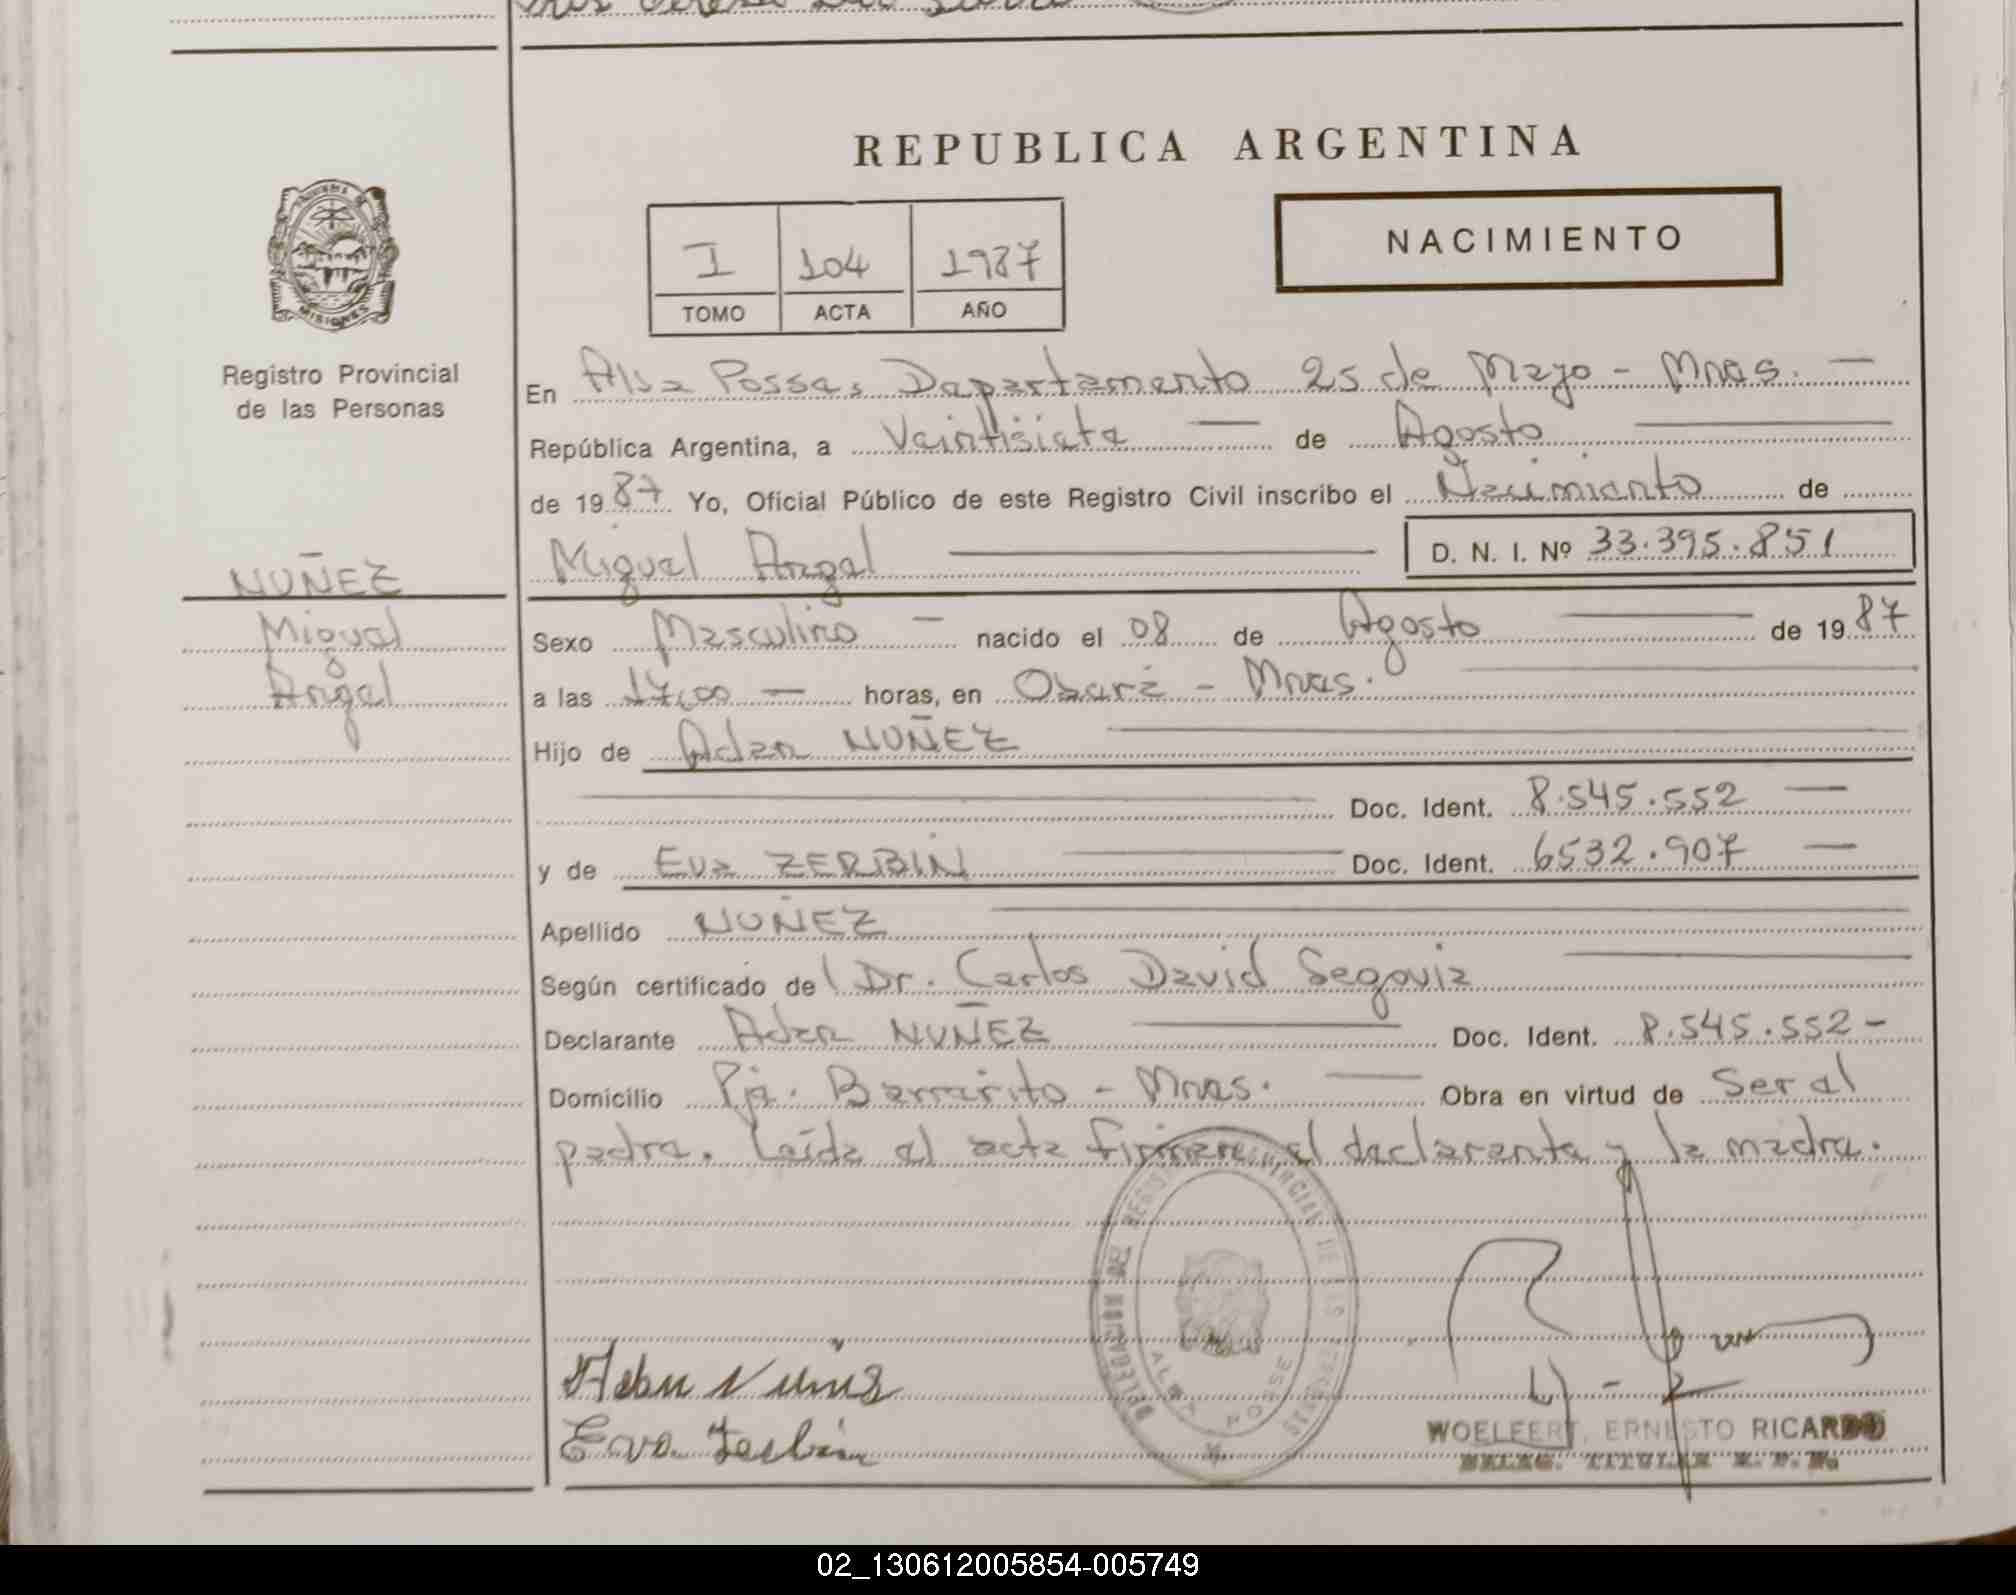 REPUBLICA ARGENTINA
MISIONES
Registro Provincial
de las Personas
NACIMIENTO
I 104 1987
TOMO ACTA AÑO
En Alba Posse, Departamento 25 de Mayo - Mnes. —
República Argentina, a Veintisiete — de Agosto —
de 1987 Yo, Oficial Público de este Registro Civil inscribo el Nacimiento de
Miguel Angel — D. N. I. Nº 33.395.851
NUÑEZ
Miguel
Angel
Sexo Masculino — nacido el 08 de Agosto — de 1987
a las 17,00 — horas, en Oberá - Mnes.
Hijo de Adan NUÑEZ —
— Doc. Ident. 8.545.552 —
y de Eva ZERBIN — Doc. Ident. 6532.907 —
Apellido NUÑEZ —
Según certificado del Dr. Carlos David Segovia —
Declarante Adan NUÑEZ — Doc. Ident. 8.545.552-
Domicilio Pje. Barrerito - Mnes. — Obra en virtud de Ser el
padre. Leída el acta firman el declarante y la madre.
DELEGACION DEL REGISTRO PROVINCIAL DE LAS PERSONAS
ALBA POSSE
Adan Nuñez
Eva Zerbin
WOELFERT, ERNESTO RICARDO
DELEG. TITULAR R. P. P.
02_130612005854-005749